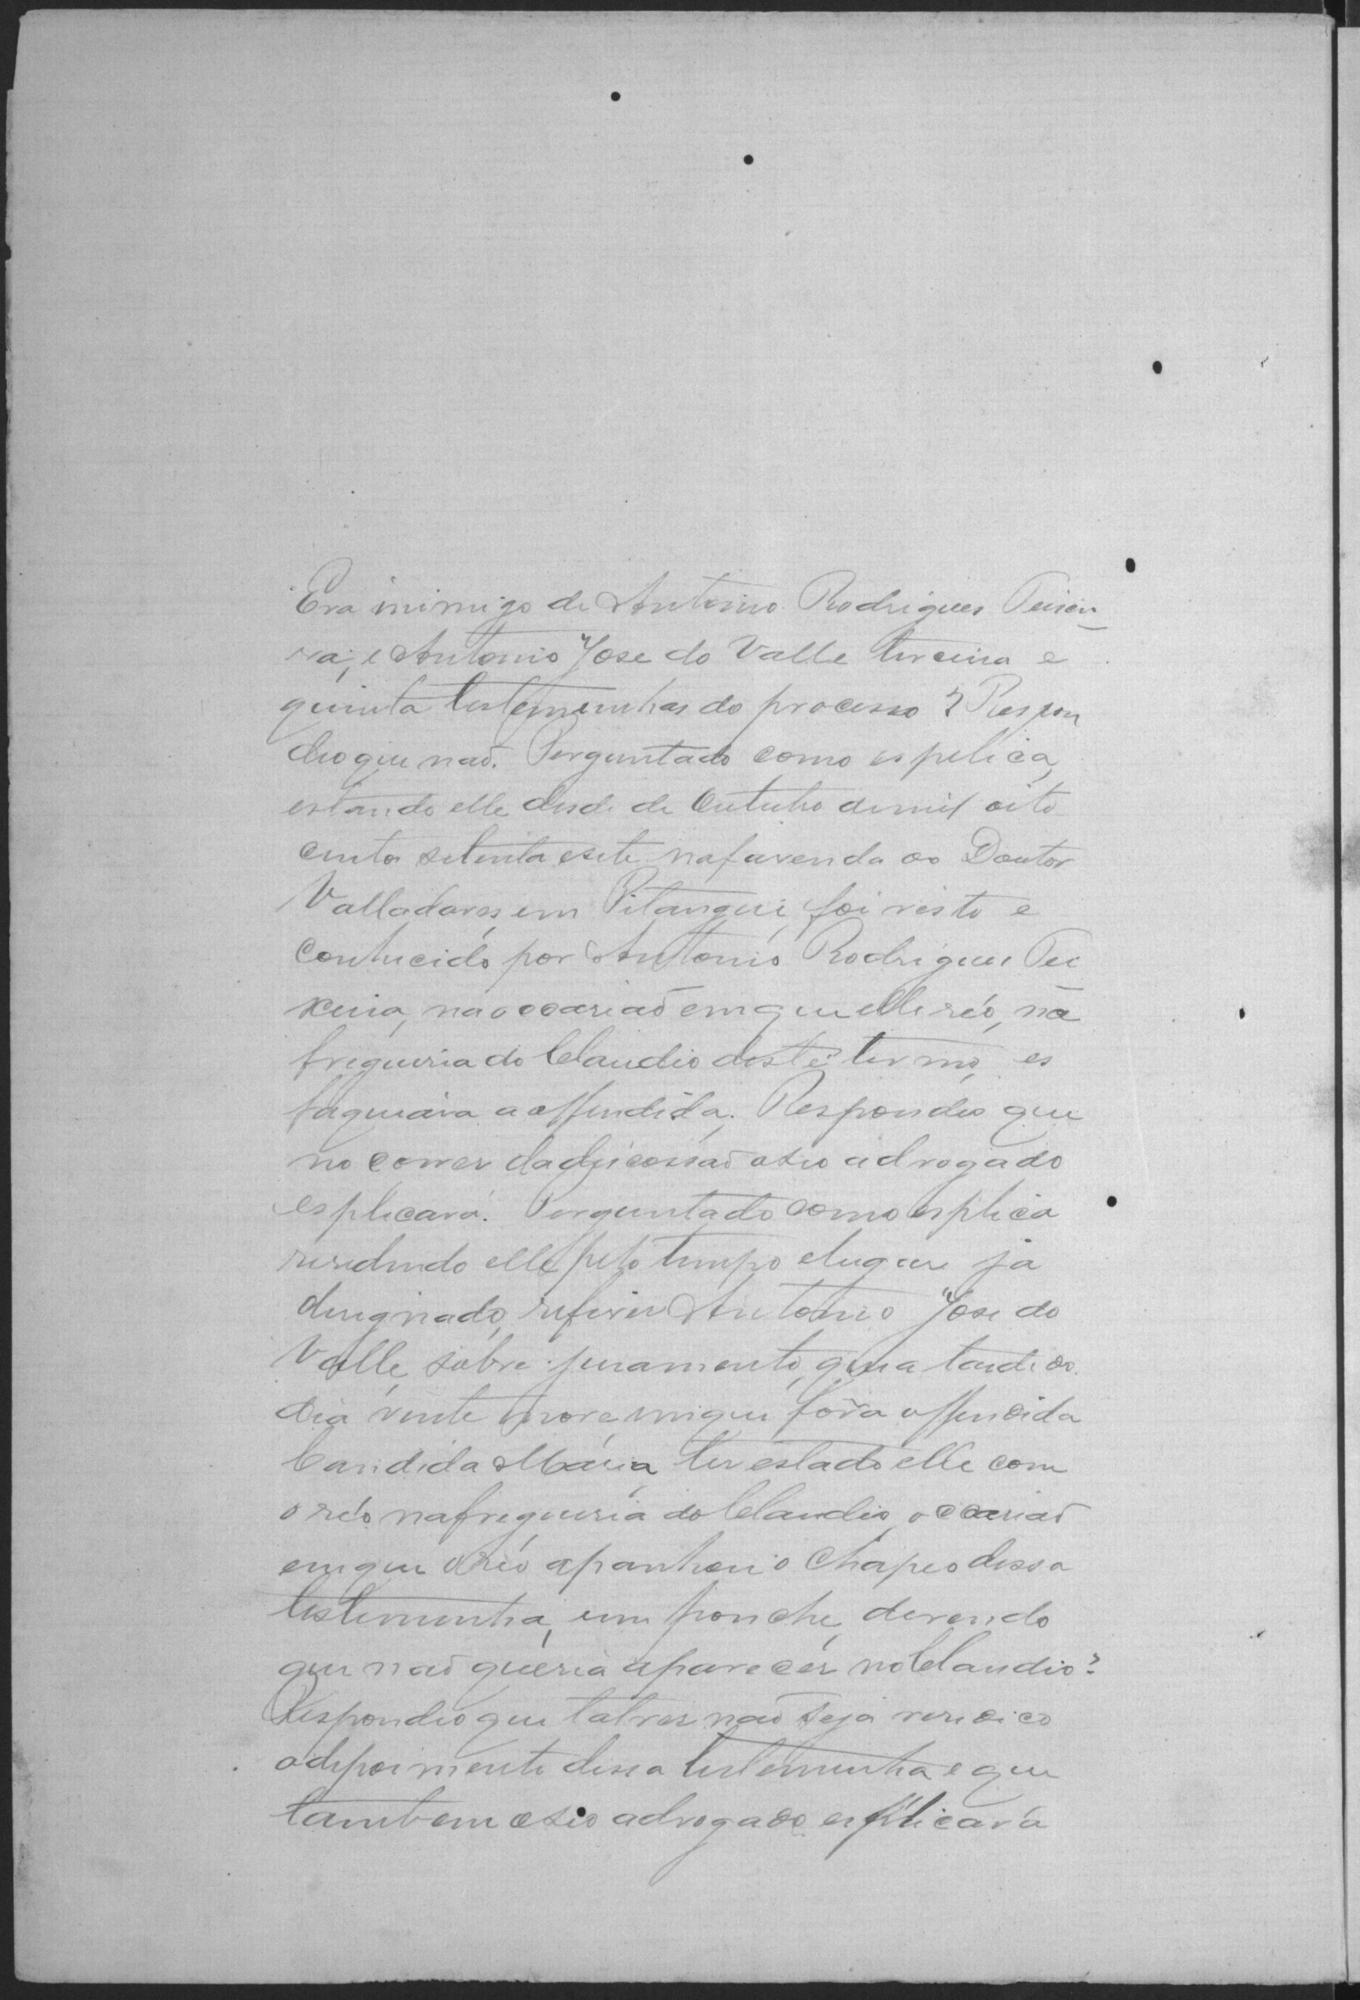 Era inimigo de Antonio Rodrigues Teixei-
ra, e Antonio José do Valle terceira e
quinta testemunhas do processo? Respon
deo que naõ. Perguntado como espelica,
estando elle desde de Outubro de mil oito
centos setenta e sete na fasenda do Doutor
Valladares, em Pitangui, foi visto e
conhecido por Antonio Rodrigues Tei
xeira, na occasiaõ em que elle réo, na
freguesia do Claudio deste termo, es
faqueára a offendida. Respondeo que
no correr da discossaõ o seo advogado
esplicará. Perguntado como esplica
residindo elle pelo tempo e lugar já
designado, referir Antonio José do
Valle, sobre juramento, que a tarde do
dia vinte nove, em que fora offendida
Candida Maria, ter estado elle com
o réo na freguesia do Claudio, occasiaõ
em que o réo apanhou o chapeo dessa
testemunha, um ponche, disendo
que naõ queria aparecer no Claudio?
Respondeo que talves naõ seja veridico
o depoimento dessa testemunha e que
tambem o seo advogado esplicará